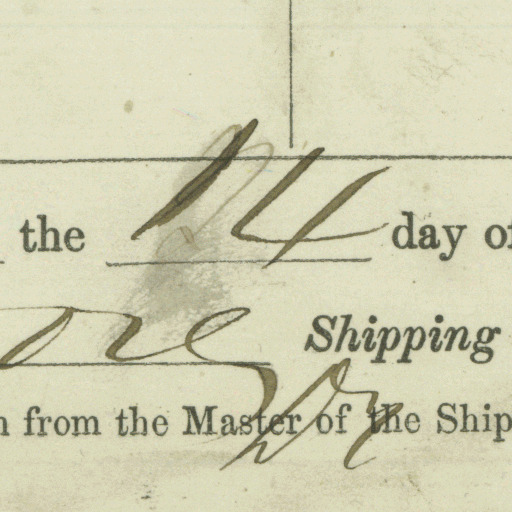 the 14 day of
Shipping
from the Master of the Ship